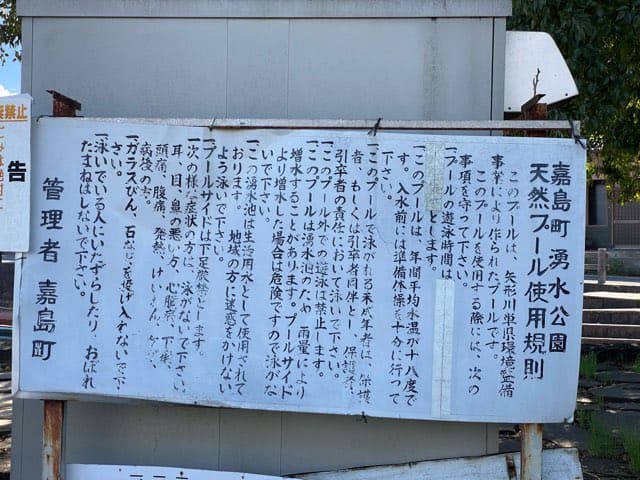 嘉島町 湧水公園
天然プール使用規則
このプールは、矢形川単県環境整備
事業により作られたプールです。
このプールを使用する際には、次の
事項を守って下さい。
一、プールの遊泳時間は
とします。
一、このプールは、年間平均水温が十八度で
す。入水前には準備体操を十分に行って
下さい。
一、このプールで泳がれる未成年者は、保護
者、もしくは引卒者同伴とし、保護者、
引卒者の責任において泳いで下さい。
一、このプール外での遊泳は禁止します。
一、このプールは湧水池のため、雨量により
増水することがあります。プールサイド
より増水した場合は危険ですので泳がな
いで下さい。
一、この湧水池は生活用水として使用されて
おります。地域の方に迷惑をかけない
よう泳いで下さい。
一、プールサイドは下足厳禁とします。
一、次の様な症状の方は、泳がないで下さい。
耳、目、鼻の悪い方、心臓病、下痢、
頭痛、腹痛、発熱、けいれん、
病後の方。
一、ガラスびん、石などを投げ入れないで下
さい。
一、泳いでいる人にいたずらしたり、おぼれ
たまねはしないで下さい。
管理者 嘉島町
禁止
告